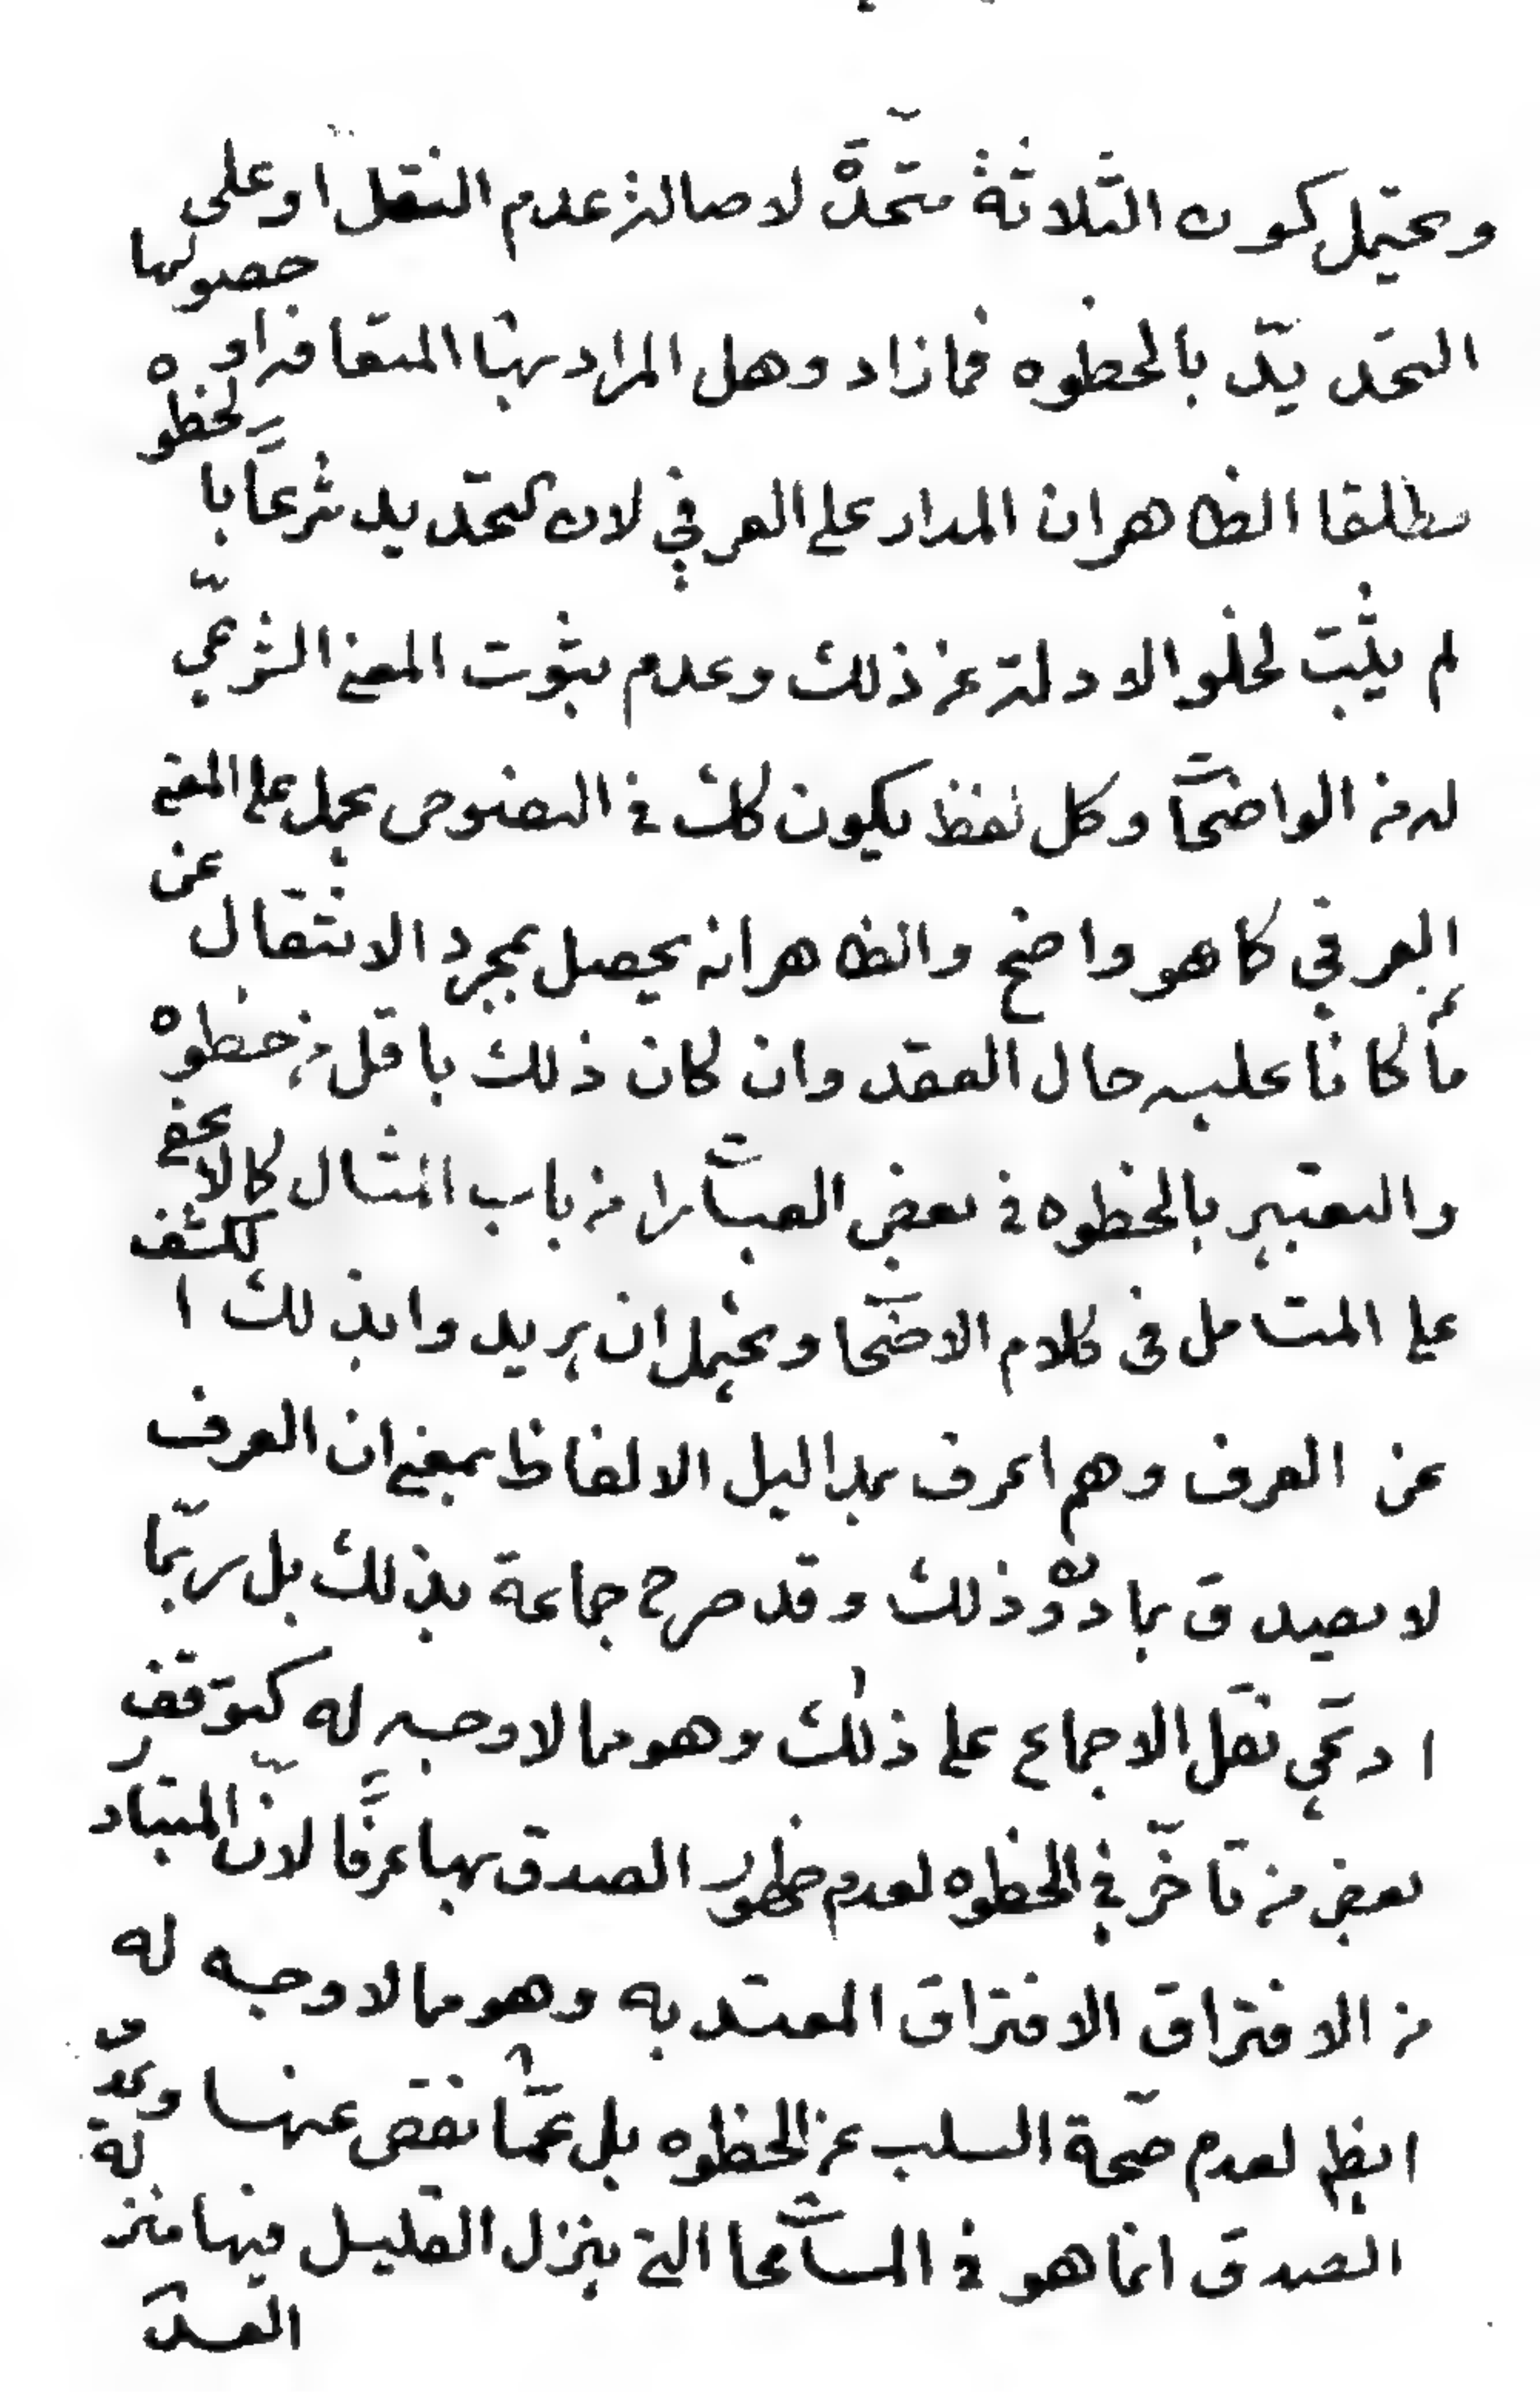 ويحتمل كون الثلاثة متحدة لاصالة عدم النقل او على حصولها
التحديد بالخطوه فمازاد وهل المراد بها المتعارفه او
مطلقا الظاهر ان المدار على العرفي لان التحديد شرعاً بالخطوه
لم يثبت لخلو الادلة عن ذلك وعدم ثبوت المعنى الشرعي
له من الواضحات وكل لفظ يكون كك في النصوص يحمل على المعنى
العرفي كما هو واضح والظاهر انه يحصل بمجرد الانتقال عن
ما كانا عليه حال العقد وان كان ذلك باقل من خطوه
والتعبير بالخطوه في بعض العبارات من باب المثال كما لا يخفى
على المتامل في كلام الاصحاب ويحتمل ان يريدوا بذلك الكشف
عن العرف وهم اعرف بمداليل الالفاظ بمعنى ان العرف
لا يصدق بما دون ذلك وقد صرح جماعة بذلك بل ربّما
ادعي نقل الاجماع على ذلك وهو مما لا وجه له كتوقف
بعض من تاخّر في الخطوه لعدم ظهور الصدق بها عرفاً لانّ المتبادر
من الافتراق الافتراق المعتد به وهو مما لا وجه له
ايضا لعدم صحّة السلب عن الخطوه بل عمّا نقص عنها وعدم
الصدق انما هو في المسامحات التي ينزل القليل فيها منزلة
العدم